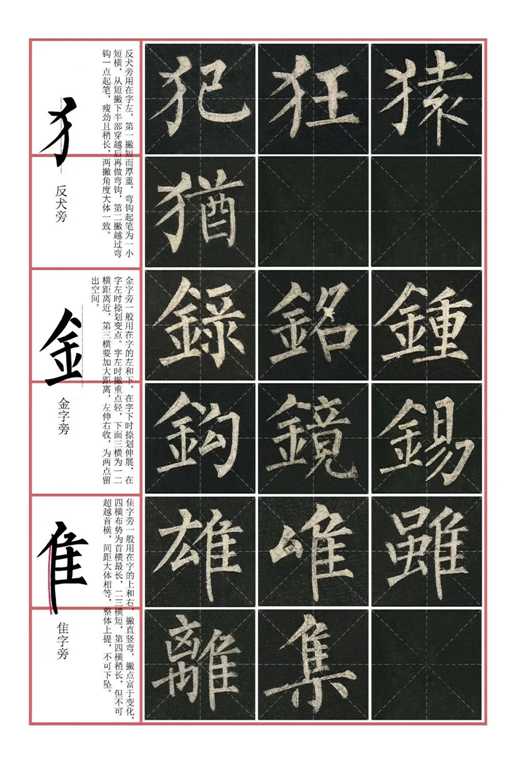 犭
反犬旁
反犬旁用在字左，第一撇短而厚重，弯钩起笔为一小
短横，从短撇下半部穿越后再做弯钩，第二撇越过弯
钩一点起笔，瘦劲且稍长，两撇角度大体一致。
犯 狂 猿
猶
金
金字旁
金字旁一般用在字的左和下，在字下时捺划伸展，在
字左时捺划变点，字左时撇重点轻，下面三横为一二
横距离近，第三横要加大距离，左伸右收，为两点留
出空间。
録 銘 鍾
鈎 鏡 錫
隹
隹字旁
隹字旁一般用在字的上和右，撇直竖弯，撇点富于变化，
四横布势为首横最长，二三横短，第四横稍长，但不可
超越首横，间距大体相等，整体上提，不可下坠。
雄 唯 雖
離 集